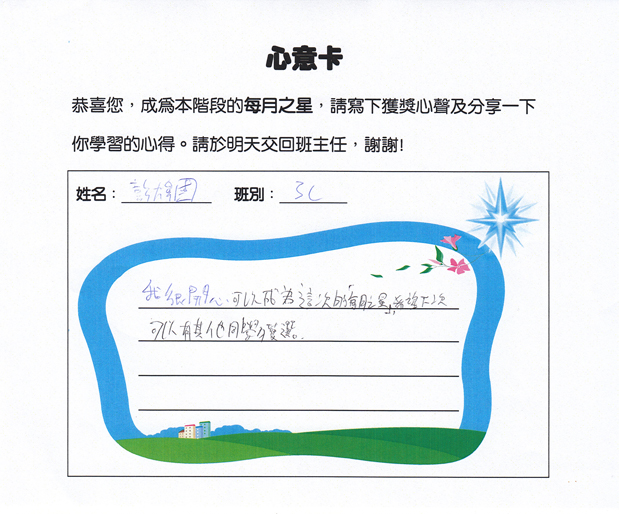 心意卡
恭喜您，成為本階段的每月之星，請寫下獲獎心聲及分享一下
你學習的心得。請於明天交回班主任，謝謝!
姓名：彭 國 班別：3C
我很開心，可以成為這次的每月之星，希望下次
可以有其他同學獲選。